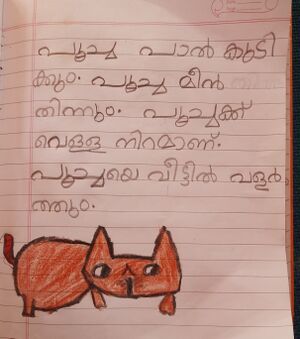 പൂച്ച പാൽ കുടി
ക്കും. പൂച്ച മീൻ
തിന്നും. പൂച്ചക്ക്
വെള്ള നിറമാണ്.
പൂച്ചയെ വീട്ടിൽ വളർ
ത്തും.